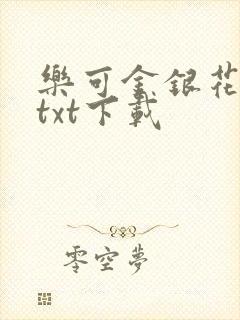 樂可金銀花
txt下載
零空夢